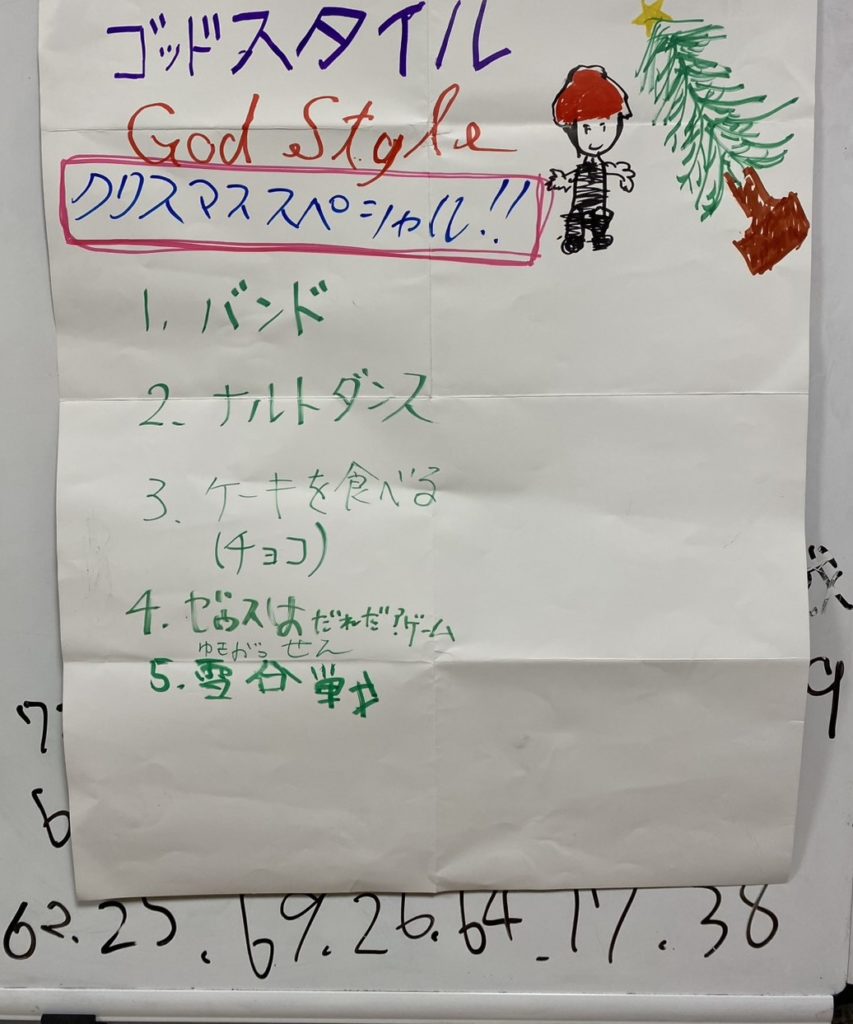 ゴッドスタイル
God Style
クリスマススペシャル!!
1. バンド
2. ナルトダンス
3. ケーキを食べる
(チョコ)
4. ゼウスはだれだ?ゲーム
せん
5. 雪合戦
7
9
6
62.25.69.26.64.17.38